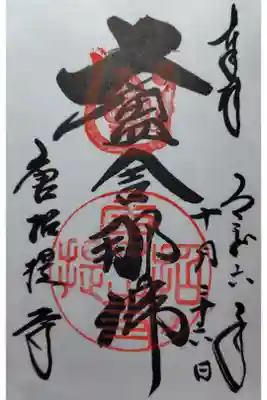 奉拝
令和六年
十月二十六日
盧舎那佛
唐招提寺